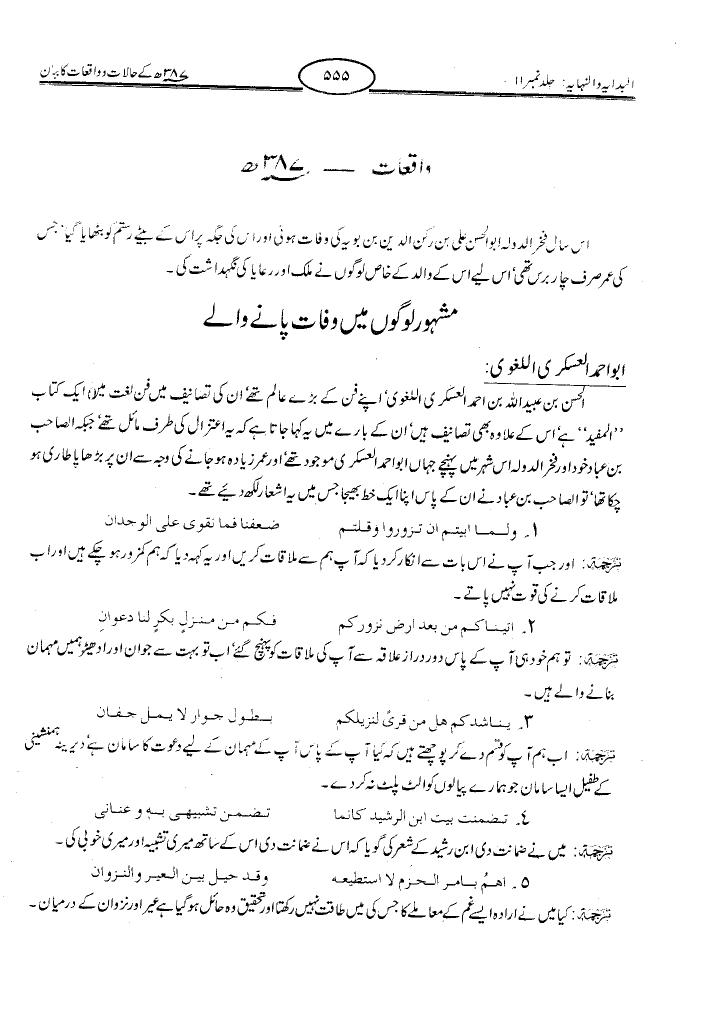 البدایہ والنہایہ: جلد نمبر ۱۱ ۵۵۵ ۳۸۷ھ کے حالات و واقعات کا بیان
واقعات — ۳۸۷ھ
اس سال فخر الدولہ ابوالحسن علی بن رکن الدین بن بویہ کی وفات ہوئی اور اس کی جگہ پر اس کے بیٹے رستم کو بٹھایا گیا‘ جس
کی عمر صرف چار برس تھی‘ اس لیے اس کے والد کے خاص لوگوں نے ملک اور رعایا کی نگہداشت کی۔
مشہور لوگوں میں وفات پانے والے
ابو احمد العسکری اللغوی:
الحسن بن عبید اللہ بن احمد العسکری اللغوی‘ اپنے فن کے بڑے عالم تھے‘ ان کی تصانیف میں فن لغت میں ایک کتاب
’’المفید‘‘ ہے‘ اس کے علاوہ بھی تصانیف ہیں‘ ان کے بارے میں یہ کہا جاتا ہے کہ یہ اعتزال کی طرف مائل تھے‘ جبکہ الصاحب
بن عباد خود اور فخر الدولہ اس شہر میں پہنچے جہاں ابو احمد العسکری موجود تھے‘ اور عمر زیادہ ہو جانے کی وجہ سے ان پر بڑھاپا طاری ہو
چکا تھا‘ تو الصاحب بن عباد نے ان کے پاس اپنا ایک خط بھیجا جس میں یہ اشعار لکھ دیئے تھے۔
۱۔ ولما ابیتم ان تزوروا وقلتم ضعفنا فما نقوی علی الوجدان
ترجمہ: اور جب آپ نے اس بات سے انکار کر دیا کہ آپ ہم سے ملاقات کریں اور یہ کہہ دیا کہ ہم کمزور ہو چکے ہیں اور اب
ملاقات کرنے کی قوت نہیں پاتے۔
۲۔ اتیناکم من بعد ارض نزورکم فکم من منزلٍ بکرٍ لنا دعوانِ
ترجمہ: تو ہم خود ہی آپ کے پاس دور دراز علاقہ سے آپ کی ملاقات کو پہنچ گئے‘ اب تو بہت سے جوان اور ادھیڑ ہمیں مہمان
بنانے والے ہیں۔
۳۔ یناشدکم هل من قریً لنزیلکم بطول جوار لا یمل جفان
ترجمہ: اب ہم آپ کو قسم دے کر پوچھتے ہیں کہ کیا آپ کے پاس آپ کے مہمان کے لیے دعوت کا سامان ہے‘ دیرینہ ہمنشینی
کے طفیل ایسا سامان جو ہمارے پیالوں کو الٹ پلٹ نہ کر دے۔
٤۔ تضمنت بیت ابن الرشید کانما تضمن تشبیهی به و عنانی
ترجمہ: میں نے ضمانت دی ابن رشید کے شعر کی گویا کہ اس نے ضمانت دی اس کے ساتھ میری تشبیہ اور میری خوبی کی۔
٥۔ اهمُ بامر الحزم لا استطیعه وقد حیل بین العیر والنزوان
ترجمہ: کیا میں نے ارادہ ایسے غم کے معاملے کا جس کی میں طاقت نہیں رکھتا اور تحقیق وہ حائل ہو گیا ہے عیر اور نزوان کے درمیان۔